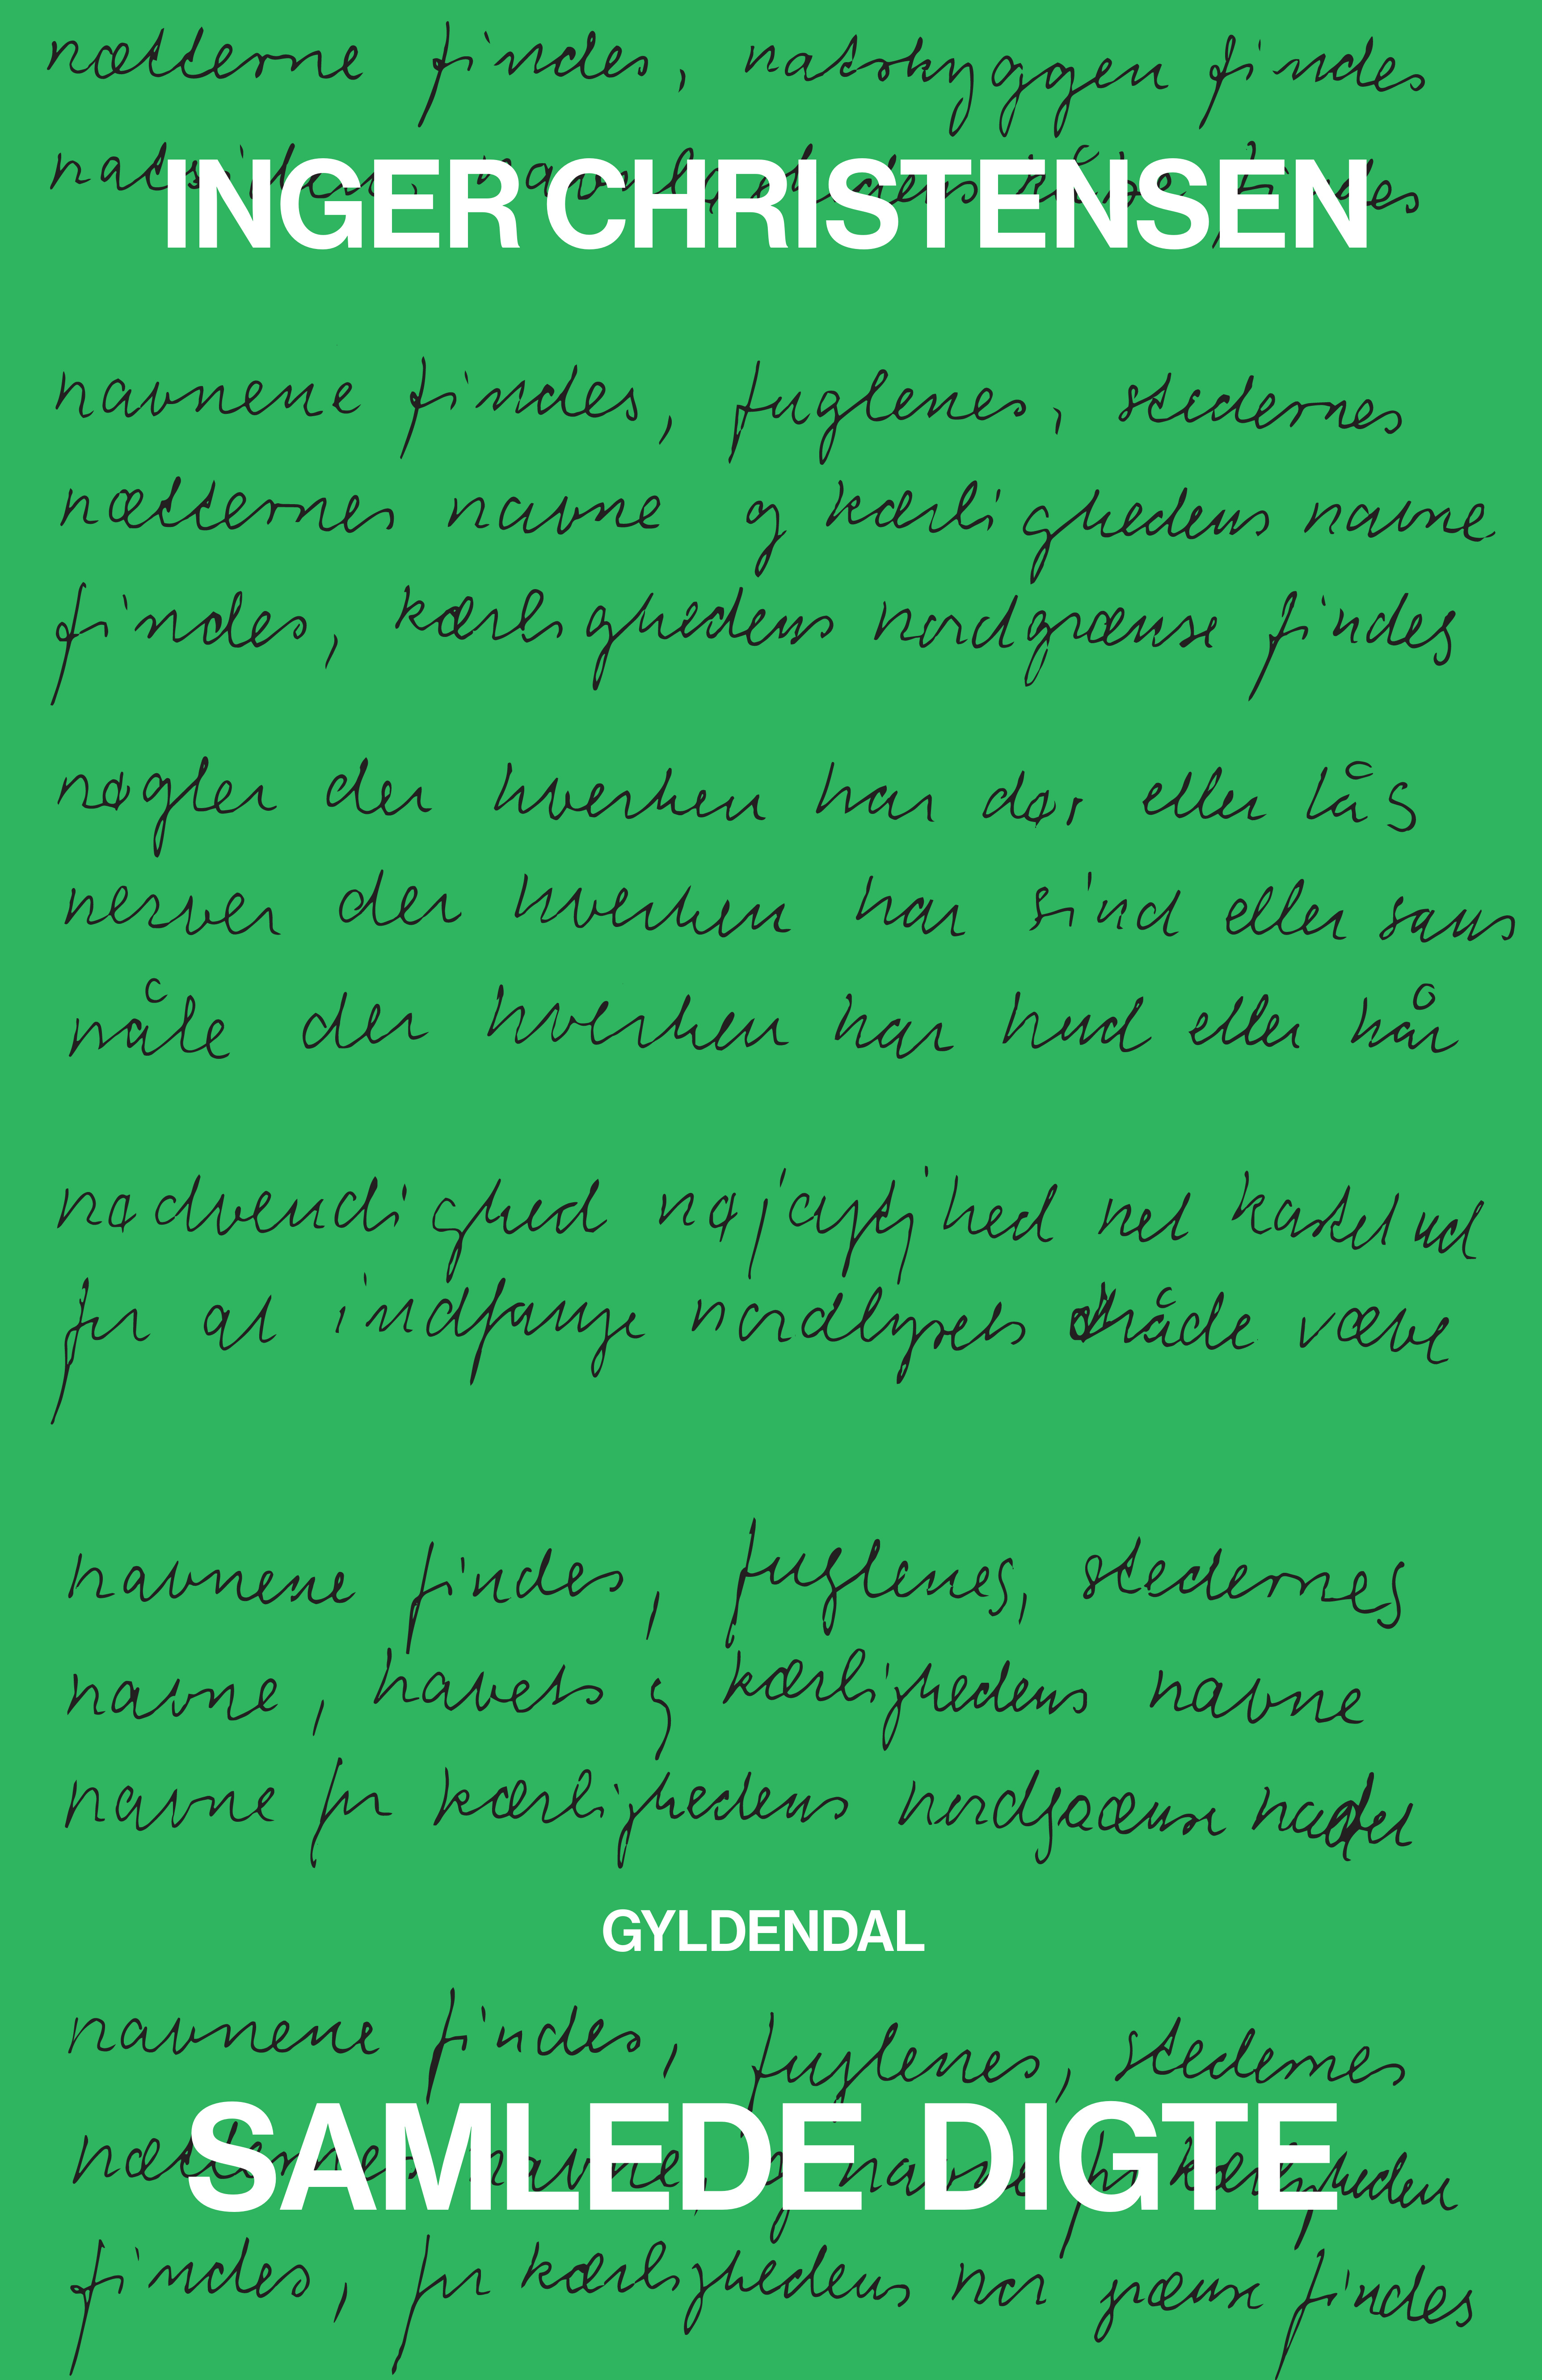 nætterne findes, natskyggen findes
findes
INGER CHRISTENSEN
navnene findes, fuglenes, stedernes
nætternes navne og kærlighedens navne
findes, kærlighedens nordgrænse findes
nøgler der hverken har dør eller lås
nerver der hverken har sind eller sans
nåle der hverken har hud eller hår
nødvendighed nøjagtighed net kastet ud
for at indfange nordlysets tråde være
navnene findes, fuglenes, stedernes
navne, havets og kærlighedens navne
navne for kærlighedens nordgrænse
GYLDENDAL
navnene findes, fuglenes, stedernes
nætternes navne, og navne for kærligheden
SAMLEDE DIGTE
findes, for kærlighedens grænse findes